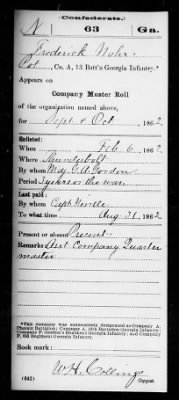 Confederate.
N 63 Ga.
Frederick Nohr
Co. A, 13 Batt'n Georgia Infantry.*
Appears on
Company Muster Roll
of the organization named above,
for Sept & Oct, 1862
Enlisted:
When Feb 6, 1862
Where Thunderbolt
By whom Maj. G. A. Gordon
Period 3 years or the war
Last paid:
By whom Capt. Neville
To what time Aug 31, 1862
Present or absent Present
Remarks Company Quarter
master
*This company was successively designated as Company A,
Phoenix Battalion; Company A, 13th Battalion Georgia Infantry;
Regiment Georgia Infantry.
Book mark:
W. H. Collings
(642) Copyist.